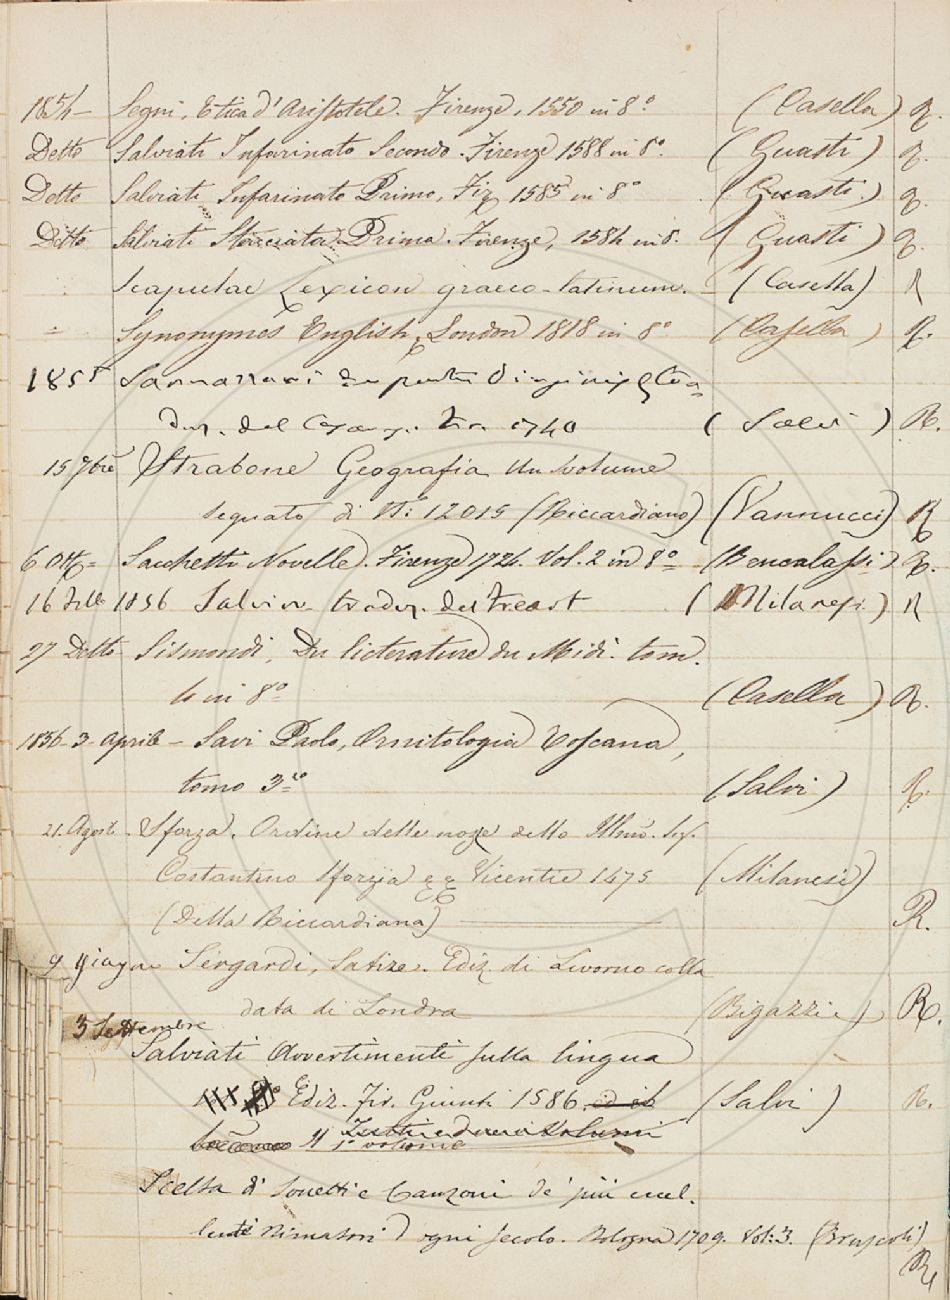 1854 — Segni, Etica d'Aristotele. Firenze, 1550 in 8° (Casella) R.
Detto Salviati Infarinato Secondo. Firenze 1588 in 8°. (Guasti) R.
Detto Salviati Infarinato Primo, Fir. 1585 in 8° (Guasti) R.
Detto Salviati Stacciata Prima. Firenze, 1584 in 8. (Guasti) R.
Scapulae Lexicon graeco-latinum. (Casella) R
Synonymes English, London 1818 in 8° (Casella) R.
1855 Sannazzari de partu Virginis
del 1740 (Salvi) R.
15 7bre Strabone Geografia Un volume
segnato di N: 12015 (Riccardiano) (Vannucci) R
6 Ott = Sacchetti Novelle. Firenze 1724. Vol. 2 in 8° (Bencalassi) R.
16 Febb 1856 Salvini traduz. (Milanesi) R
27 Detto Sismondi, Du licterature du Midi. tom.
4 in 8° (Casella) R.
1856 3 Aprile — Savi Paolo, Ornitologia Toscana,
tomo 3° (Salvi) R.
21. Agost. Sforza. Ordine delle noze dello Illmo. Sig.
Costantino Sforzia Vicentie 1475 (Milanesi)
(Della Riccardiana) R.
9 Giugno Sergardi, Satire. Ediz. di Livorno colla
data di Londra (Bigazzi) R.
3 Settembre
Salviati Avvertimenti sulla lingua
Ediz. Fir. Giunti 1586. ed il (Salvi) R.
Tutti e due i Volumi
1° volume
Scelta di Sonetti e Canzoni de' più eccel.
lenti Rimatori d'ogni secolo. Bologna 1709. Vol: 3. (Bruscoli)
R.